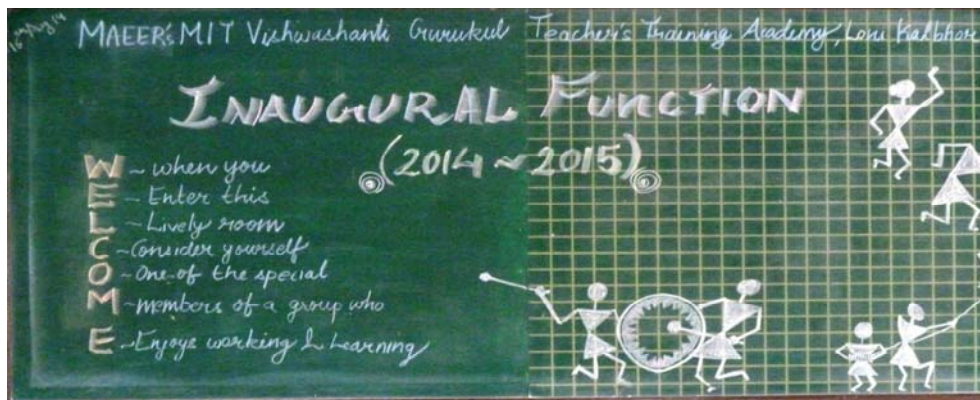 MAEER's MIT Vishwashanti Gurukul Teacher's Training Academy, Loni Kalbhor
INAUGURAL FUNCTION
(2014 ~ 2015)
W ~ when you
E ~ Enter this
L ~ Lively room
C ~ Consider yourself
O ~ One of the special
M ~ members of a group who
E ~ Enjoys working & Learning